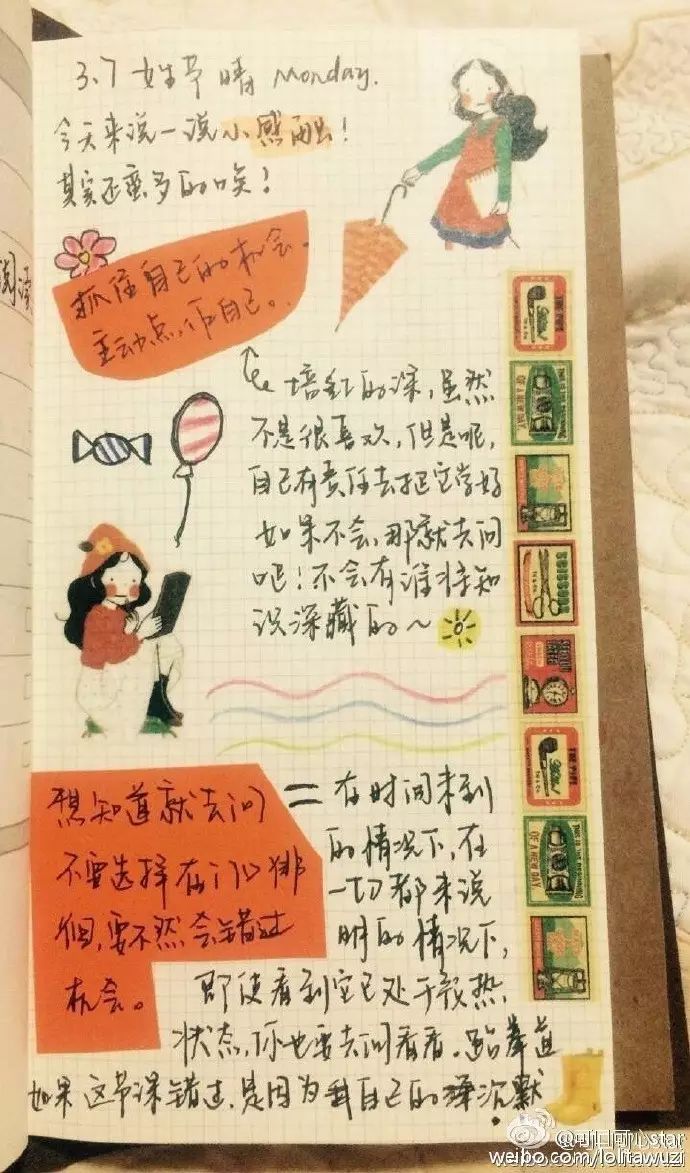 3.7 女生节 晴 Monday.
今天来说一说小感触！
其实还蛮多的唉！
抓住自己的机会、
主动点,作自己。
培红的课,虽然
不是很喜欢,但是呢,
自己有责任去把它学好
如果不会,那就去问
吧！不会有谁将知
识深藏的～
想知道就去问
不要选择在门口徘
徊,要不然会错过
机会。
=在时间来到
的情况下,在
一切都来说
明的情况下,
即使看到它已处于
状态,你也要去问看看。跆拳道
如果这节课错过,是因为我自己的沉默
THE PIPE
OF A NEW DAY
SCISSORS
THE PIPE
OF A NEW DAY
weibo.com/lolitawuzi